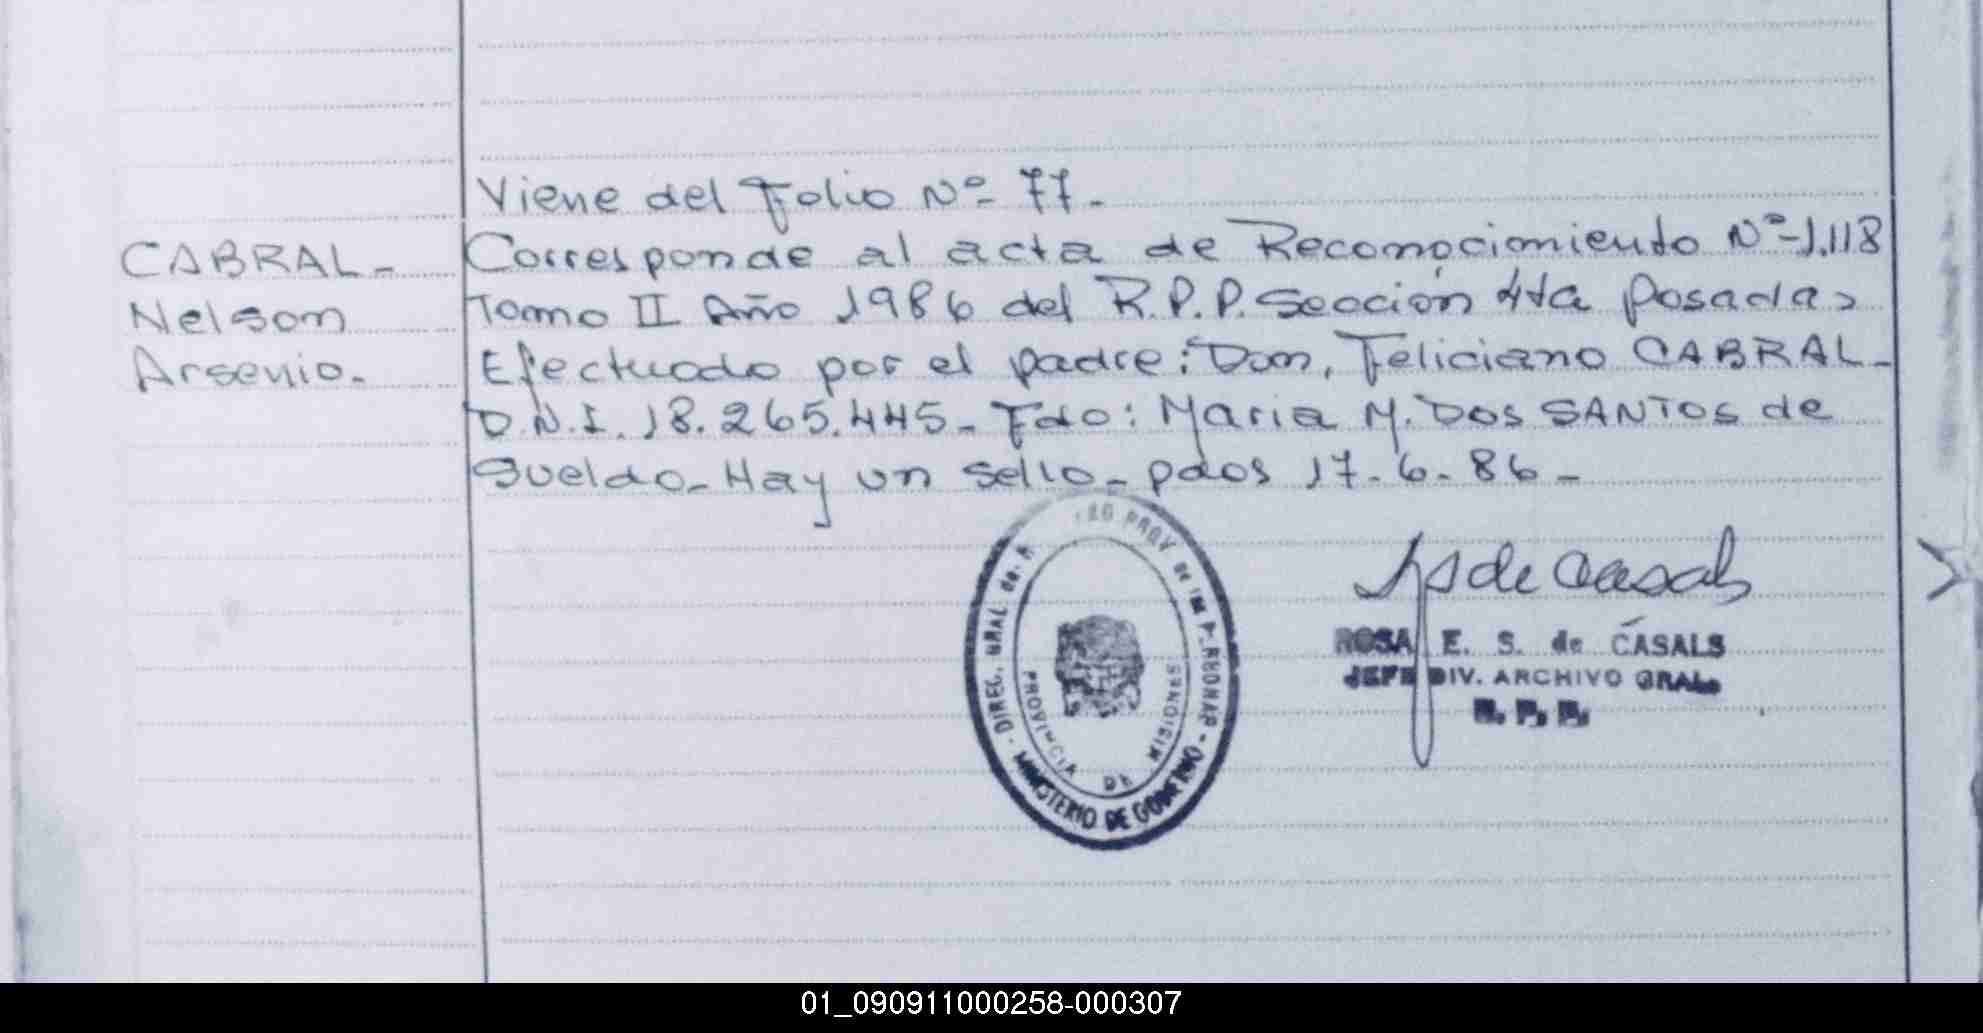 Viene del Folio Nº- 77-
CABRAL-
Nelson
Arsenio.
Corresponde al acta de Reconocimiento Nº-1.118
Tomo II Año 1986 del R.P.P. Sección 4ta Posadas
Efectuado por el padre: Don, Feliciano CABRAL-
D.N.I. 18.265.445- Fdo: Maria M. Dos SANTOS de
Sueldo- Hay un sello- pdas 17-6-86-
DIREC. GRAL. de PROV de las
MINISTERIO DE GOBIERNO
PROVINCIA DE MISIONES
de Casals
ROSA E. S. de CASALS
JEFE DIV. ARCHIVO GRAL.
R. P. P.
01_090911000258-000307